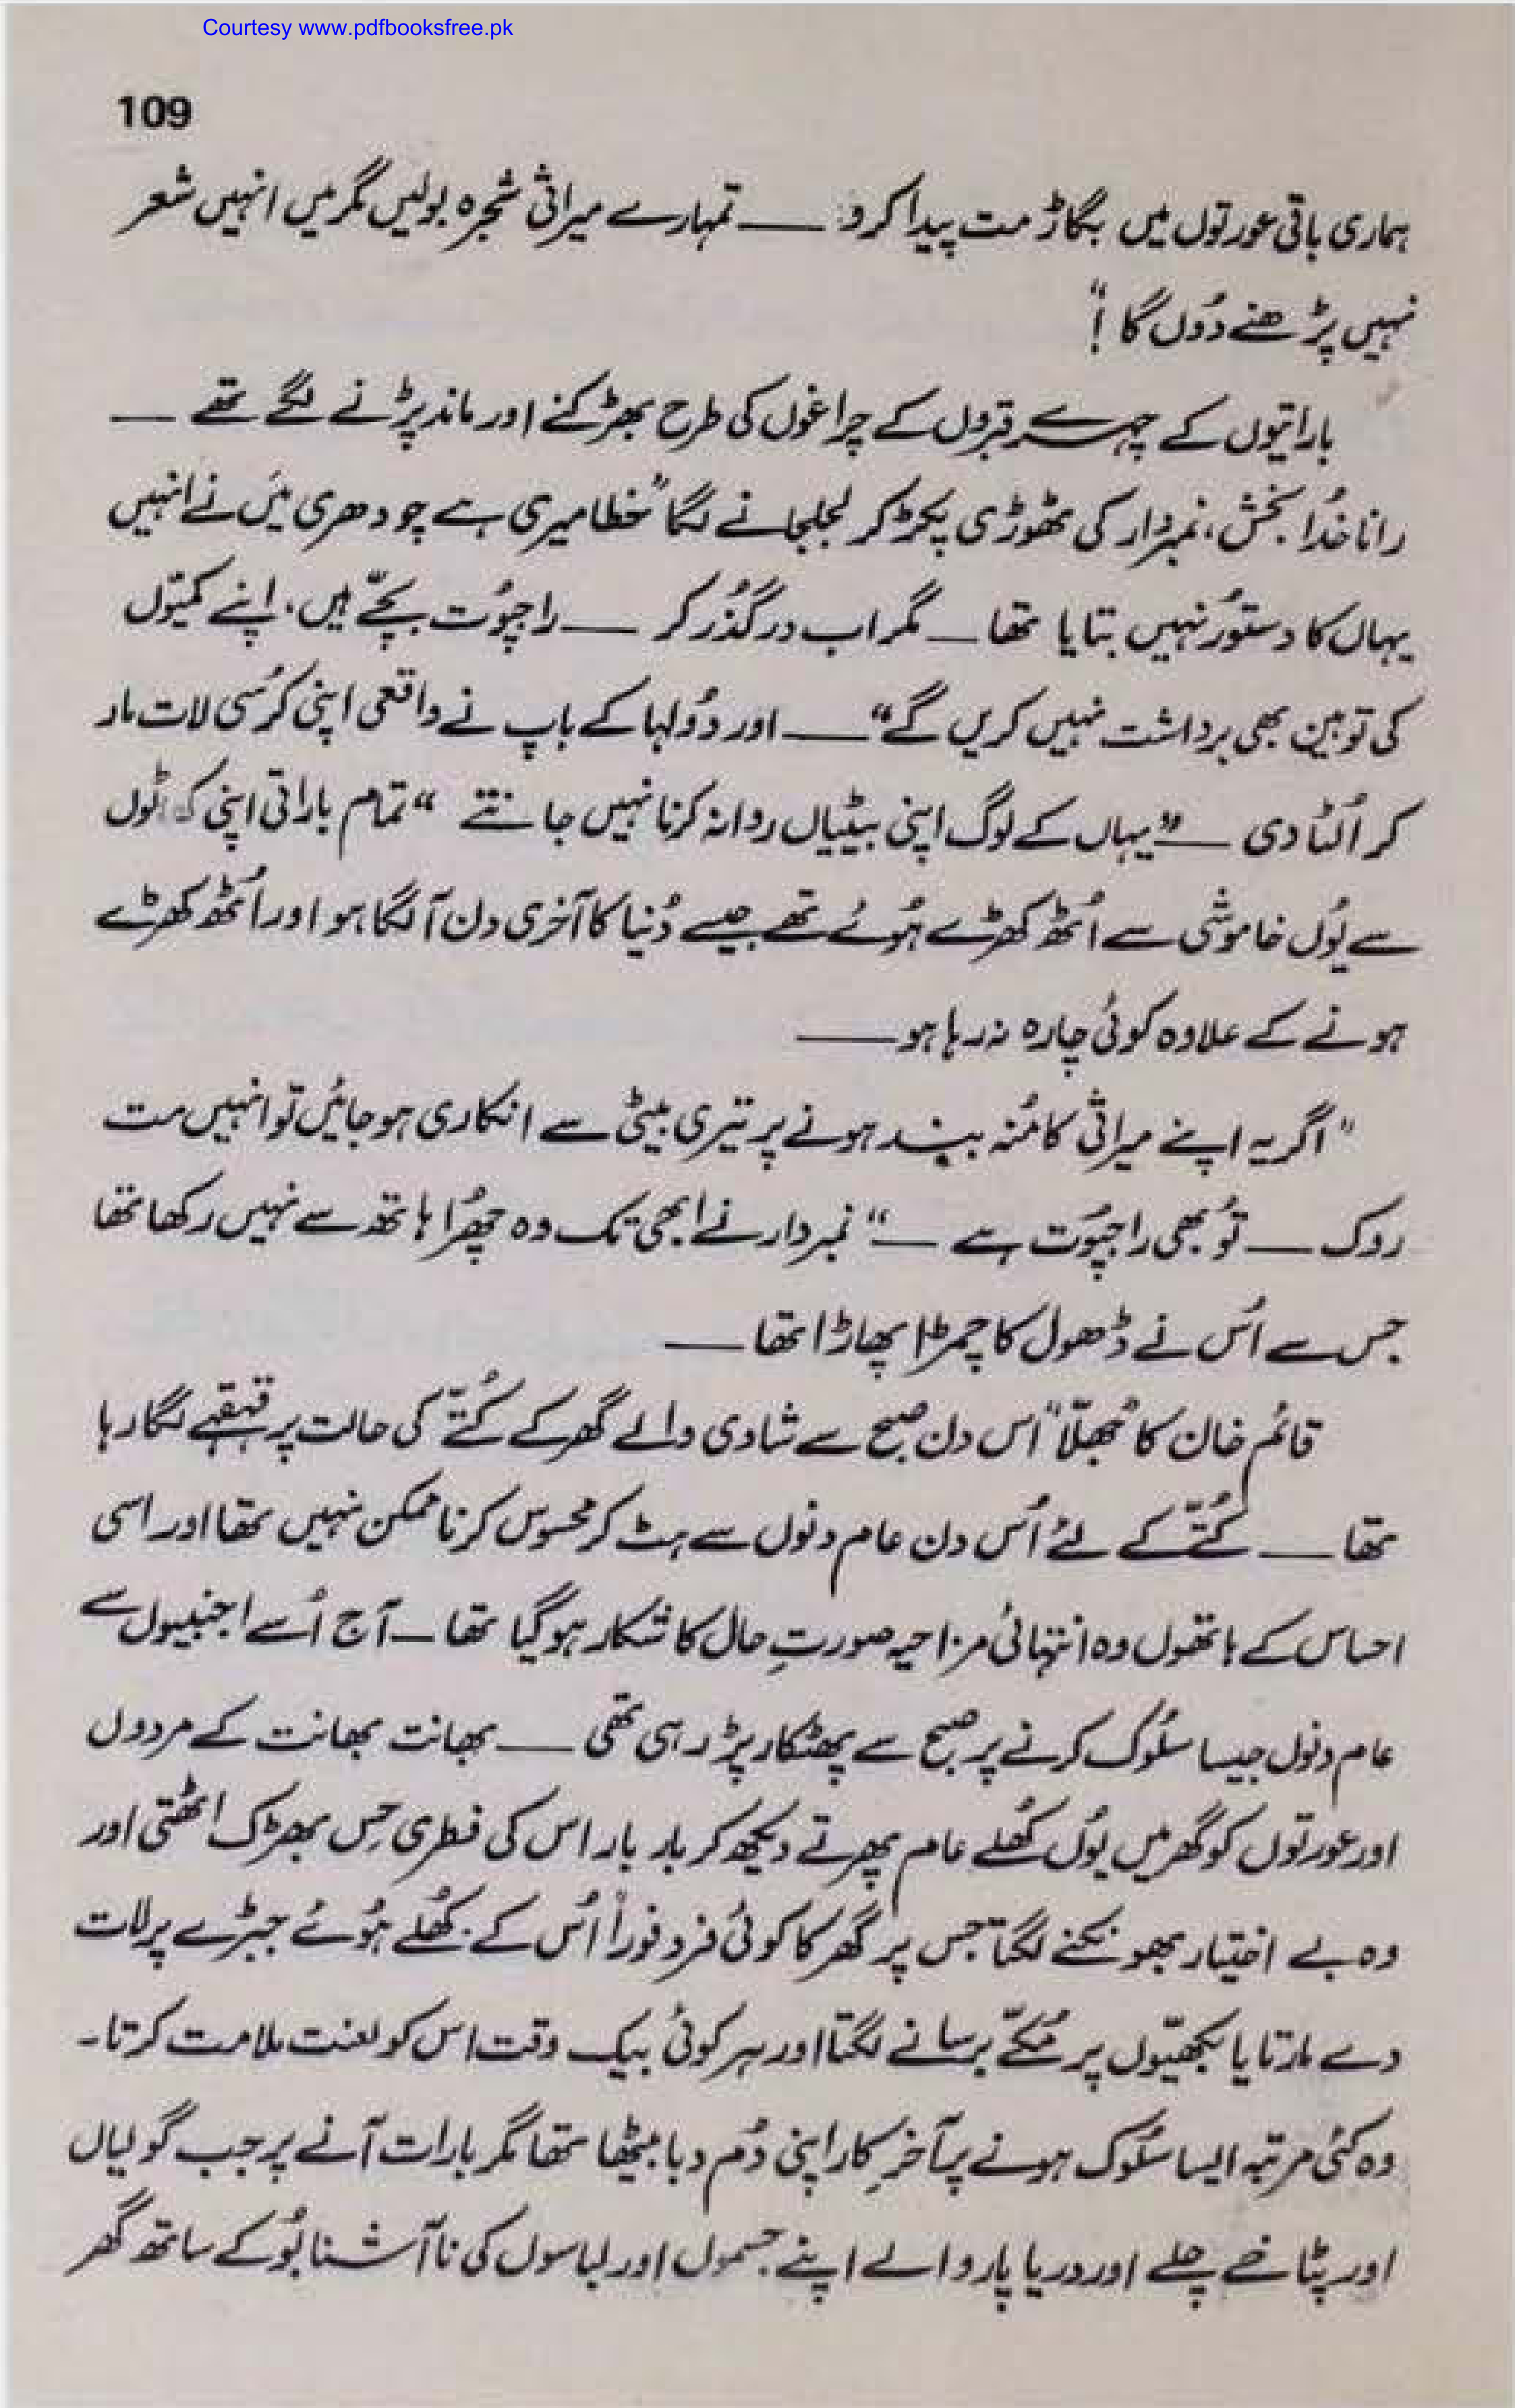 Courtesy www.pdfbooksfree.pk
109
ہماری باقی عورتوں میں بگاڑ مت پیدا کرو ــــ تمہارے میراثی شجرہ بولیں مگر میں انہیں شعر
نہیں پڑھنے دُوں گا !"
باراتیوں کے چہرے قبروں کے چراغوں کی طرح بھڑکنے اور ماند پڑنے لگے تھے ــــ
رانا خُدا بخش، نمبردار کی ٹھوڑی پکڑ کر لجلجانے لگا "خطا میری ہے چودھری مَیں نے انہیں
یہاں کا دستُور نہیں بتایا تھا ــــ مگر اب درگذر کر ــــ راجپُوت بچّے ہیں، اپنے کمیّوں
کی توہین بھی برداشت نہیں کریں گے" ــــ اور دُولہا کے باپ نے واقعی اپنی کُرسی لات مار
کر اُلٹا دی ــــ "یہاں کے لوگ اپنی بیٹیاں روانہ کرنا نہیں جانتے" تمام باراتی اپنی
سے یُوں خاموشی سے اُٹھ کھڑے ہُوئے تھے جیسے دُنیا کا آخری دن آ لگا ہو اور اُٹھ کھڑے
ہونے کے علاوہ کوئی چارہ نہ رہا ہو ــــ
"اگر یہ اپنے میراثی کا مُنہ بند ہونے پر تیری بیٹی سے انکاری ہو جائیں تو انہیں مت
روک ــــ تُو بھی راجپُوت ہے ــــ" نمبردار نے ابھی تک وہ چھُرا ہاتھ سے نہیں رکھا تھا
جس سے اُس نے ڈھول کا چمڑا پھاڑا تھا ــــ
قائم خان کا "جُھلّا" اُس دن صبح سے شادی والے گھر کے کُتّے کی حالت پر قہقہے لگا رہا
تھا ــــ کُتّے کے لئے اُس دن عام دنوں سے ہٹ کر محسوس کرنا ممکن نہیں تھا اور اسی
احساس کے ہاتھوں وہ انتہائی مزاحیہ صورتِ حال کا شکار ہو گیا تھا ــ آج اُسے اجنبیوں سے
عام دنوں جیسا سلُوک کرنے پر صبح سے پھٹکار پڑ رہی تھی ــــ بھانت بھانت کے مردوں
اور عورتوں کو گھر میں یُوں کُھلے عام پھرتے دیکھ کر بار بار اس کی فطری حِس بھڑک اٹھتی اور
وہ بے اختیار بھونکنے لگتا جس پر گھر کا کوئی فرد فوراً اُس کے کُھلے ہُوئے جبڑے پر لات
دے مارتا یا پر مُکّے برسانے لگتا اور ہر کوئی بیک وقت اس کو لعنت ملامت کرتا۔
وہ کئی مرتبہ ایسا سلُوک ہونے پر آخرِ کار اپنی دُم دبا بیٹھا تھا مگر بارات آنے پر جب گولیاں
اور پٹاخے چلے اور دریا پار والے اپنے جسموں اور لباسوں کی نا آشنا بُو کے ساتھ گھر